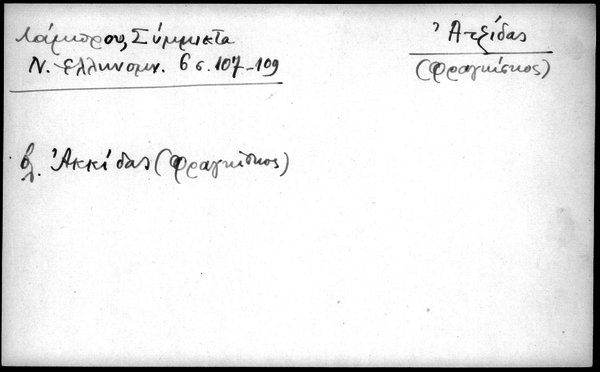 Λάμπρου, Σύμμικτα
Ν. Ελληνομν. 6 σ. 107-109
Ἀτζίδας
(Φραγκίσκος)
βλ. Ἀκκίδας (Φραγκίσκος)